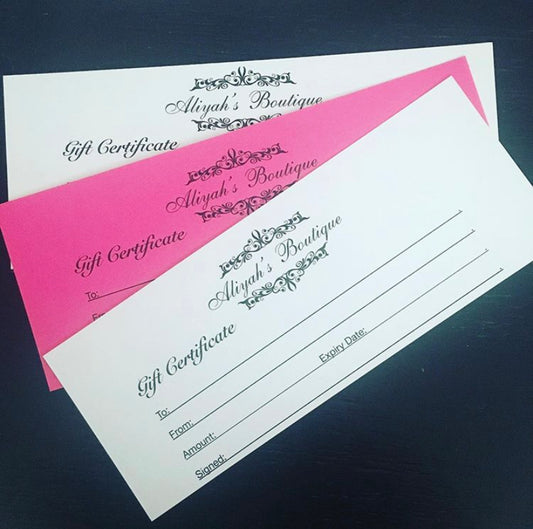 Aliyah's Boutique
Gift Certificate
Aliyah's Boutique
Gift Certificate
To:
Aliyah's Boutique
Gift Certificate
To:
From:
Amount: Expiry Date:
Signed: